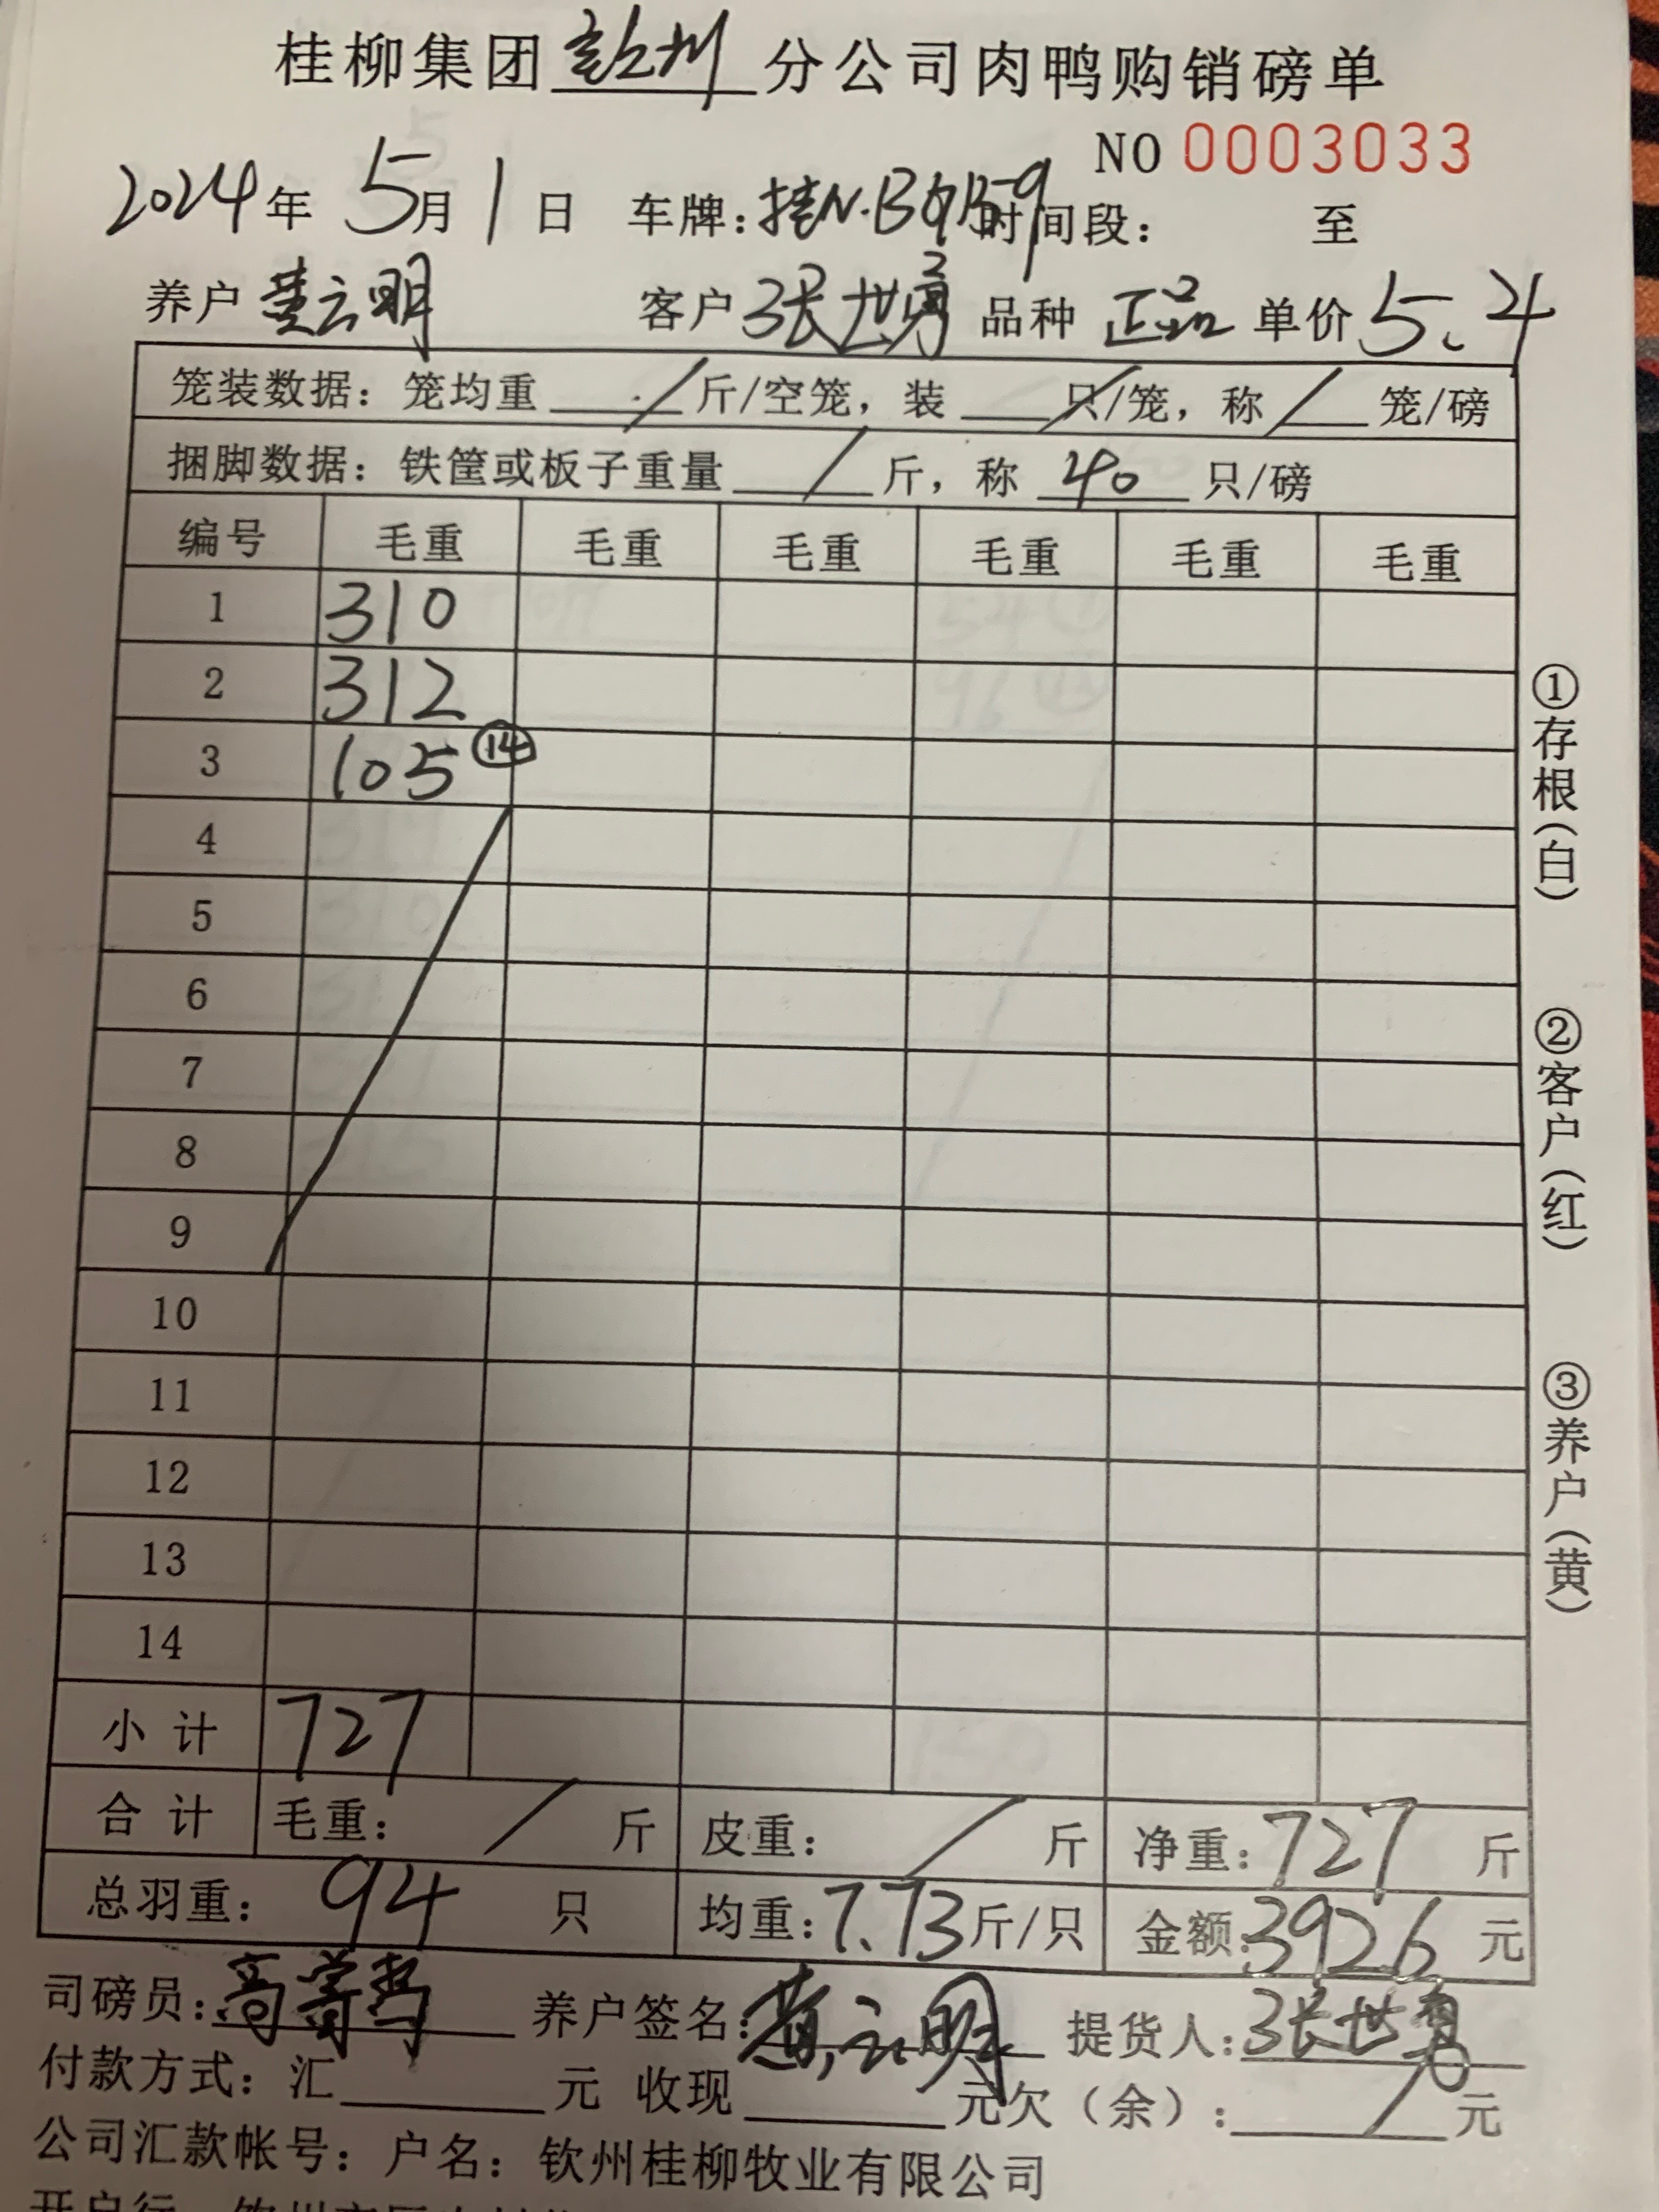 桂柳集团钦州分公司肉鸭购销磅单
NO 0003033
2024年 5月 1日 车牌: 桂N· 时间段: 至
养户 黄云明 客户 张世勇 品种 正品 单价 5.4
笼装数据: 笼均重 / 斤/空笼, 装 / 只/笼, 称 / 笼/磅
捆脚数据: 铁筐或板子重量 / 斤, 称 40 只/磅
编号 毛重 毛重 毛重 毛重 毛重 毛重
1 310
2 312
3 105 ⑭
4
5
6
7
8
9
10
11
12
13
14
小计 727
合计 毛重: / 斤 皮重: / 斤 净重: 727 斤
总羽重: 94 只 均重: 7.73 斤/只 金额: 3926 元
司磅员: 养户签名: 黄云明 提货人: 张世勇
付款方式: 汇 元 收现 元欠(余): / 元
公司汇款帐号: 户名: 钦州桂柳牧业有限公司
①存根(白)
②客户(红)
③养户(黄)